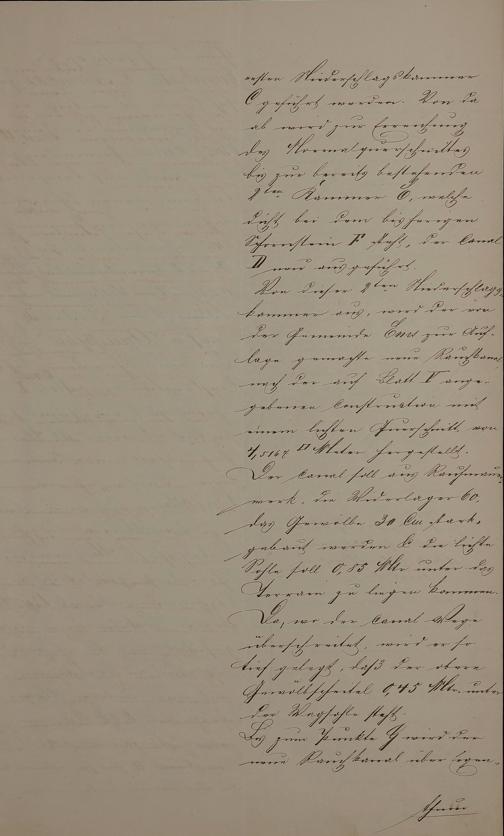 ersten Niederschlagskammer
C geführt werden. Von da
ab wird zur Erreichung
des Normalquerschnittes
bis zur bereits bestehenden
2ten Kammer E, welche
dicht bei dem bisherigen
Schornstein F steht, der Canal
D neu ausgeführt.
Von dieser 2ten Niederschlags-
kammer aus, wird der von
der Gemeinde Ems zur Auf-
lage gemachte neue Rauchkanal
nach der auf Blatt V ange-
gebenen Construction mit
einem lichten Querschnitt von
1,5167 □ Meter hergestellt.
Der Canal soll aus Rauhmauer-
werk, die Widerlager 60,
das Gewölbe 30 Cm stark,
gebaut werden & die lichte
Sohle soll 0,85 Mtr unter das
Terrain zu liegen kommen.
Da, wo der Canal Wege
überschreitet, wird er so
tief gelegt, daß der obere
Gewölbscheitel 0,45 Mtr. unter
der Wegsohle steht.
Bis zum Punkte G wird der
neue Rauchkanal über